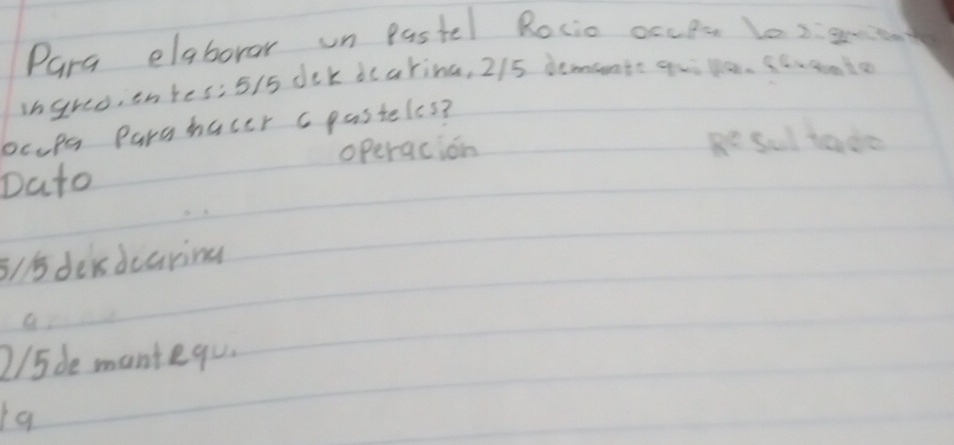 Para elaborar un Pastel Rocio ocupa lo siguiente
ingredientes: 5/5 dek dearina, 2/5 demante qui
ocupa Para hacer 6 pasteles?
Dato operación Resultado
5/5 dekdearina
a
2/5 de mantequ.